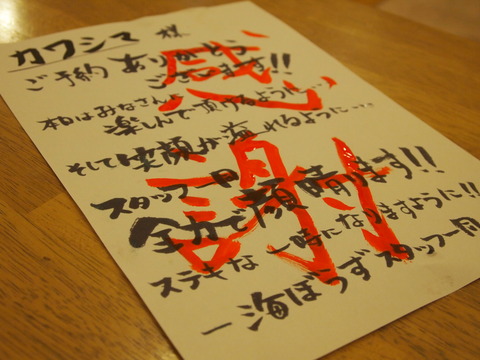 カワシマ 様
ご予約 ありがとう
ございます!!
本日はみなさんに
楽しんで頂けるように…
そして笑顔が溢れるように…
スタッフ一同
全力で顔晴ります!!!
ステキな一時になりますように!!
一海ぼうずスタッフ一同
感謝